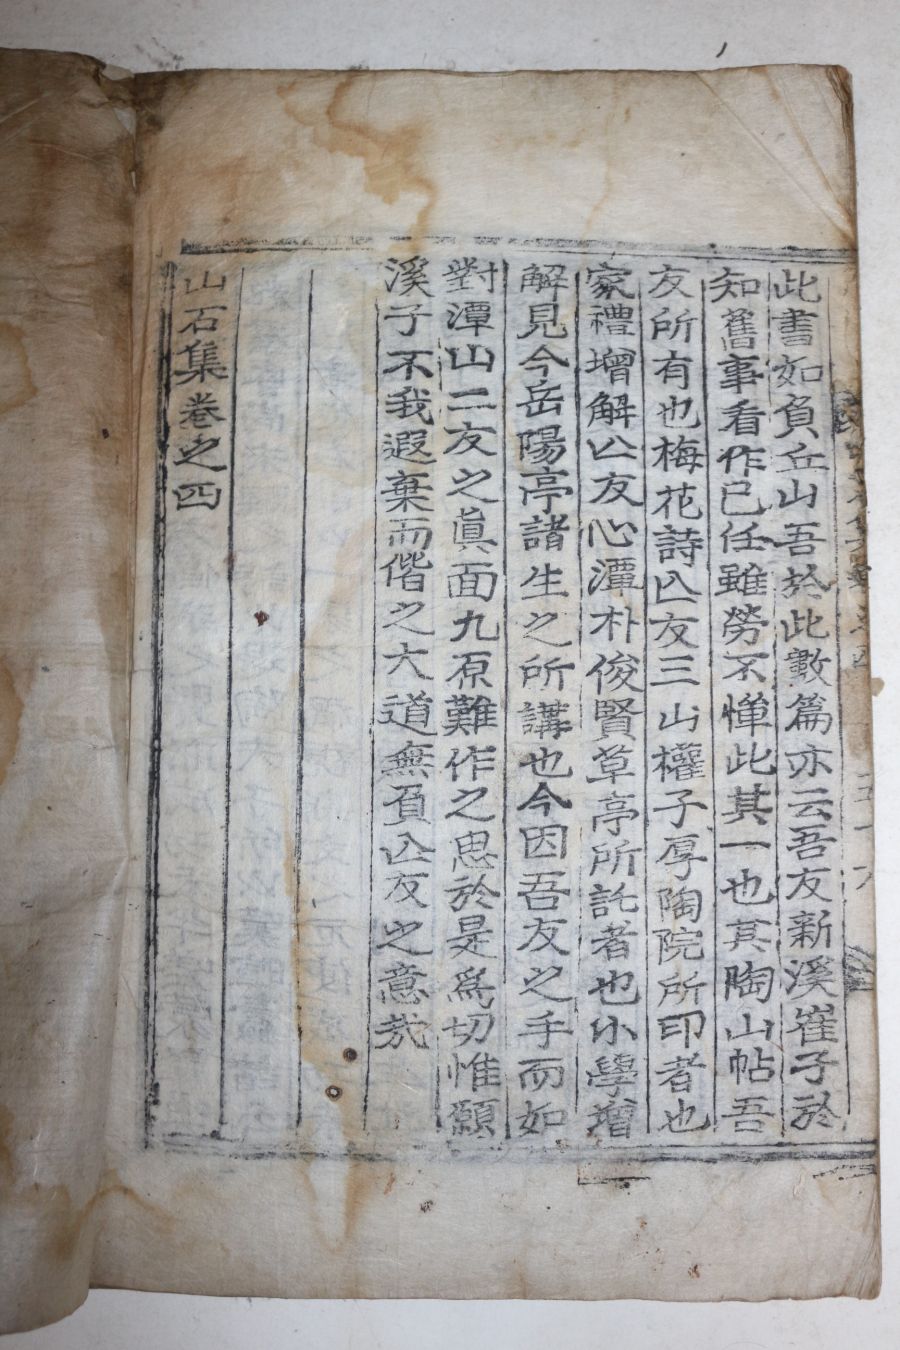 此書如負丘山吾於此數篇亦云吾友新溪崔子於
知舊事看作已任雖勞不憚此其一也其陶山帖吾
友所有也梅花詩亡友三山權子厚陶院所印者也
家禮增解亡友心潭朴俊賢草亭所託者也小學增
解見今岳陽亭諸生之所講也今因吾友之手而如
對潭山二友之眞面九原難作之思於是爲切惟願
溪子不我遐棄而偕之大道無負亡友之意㢤
山石集卷之四